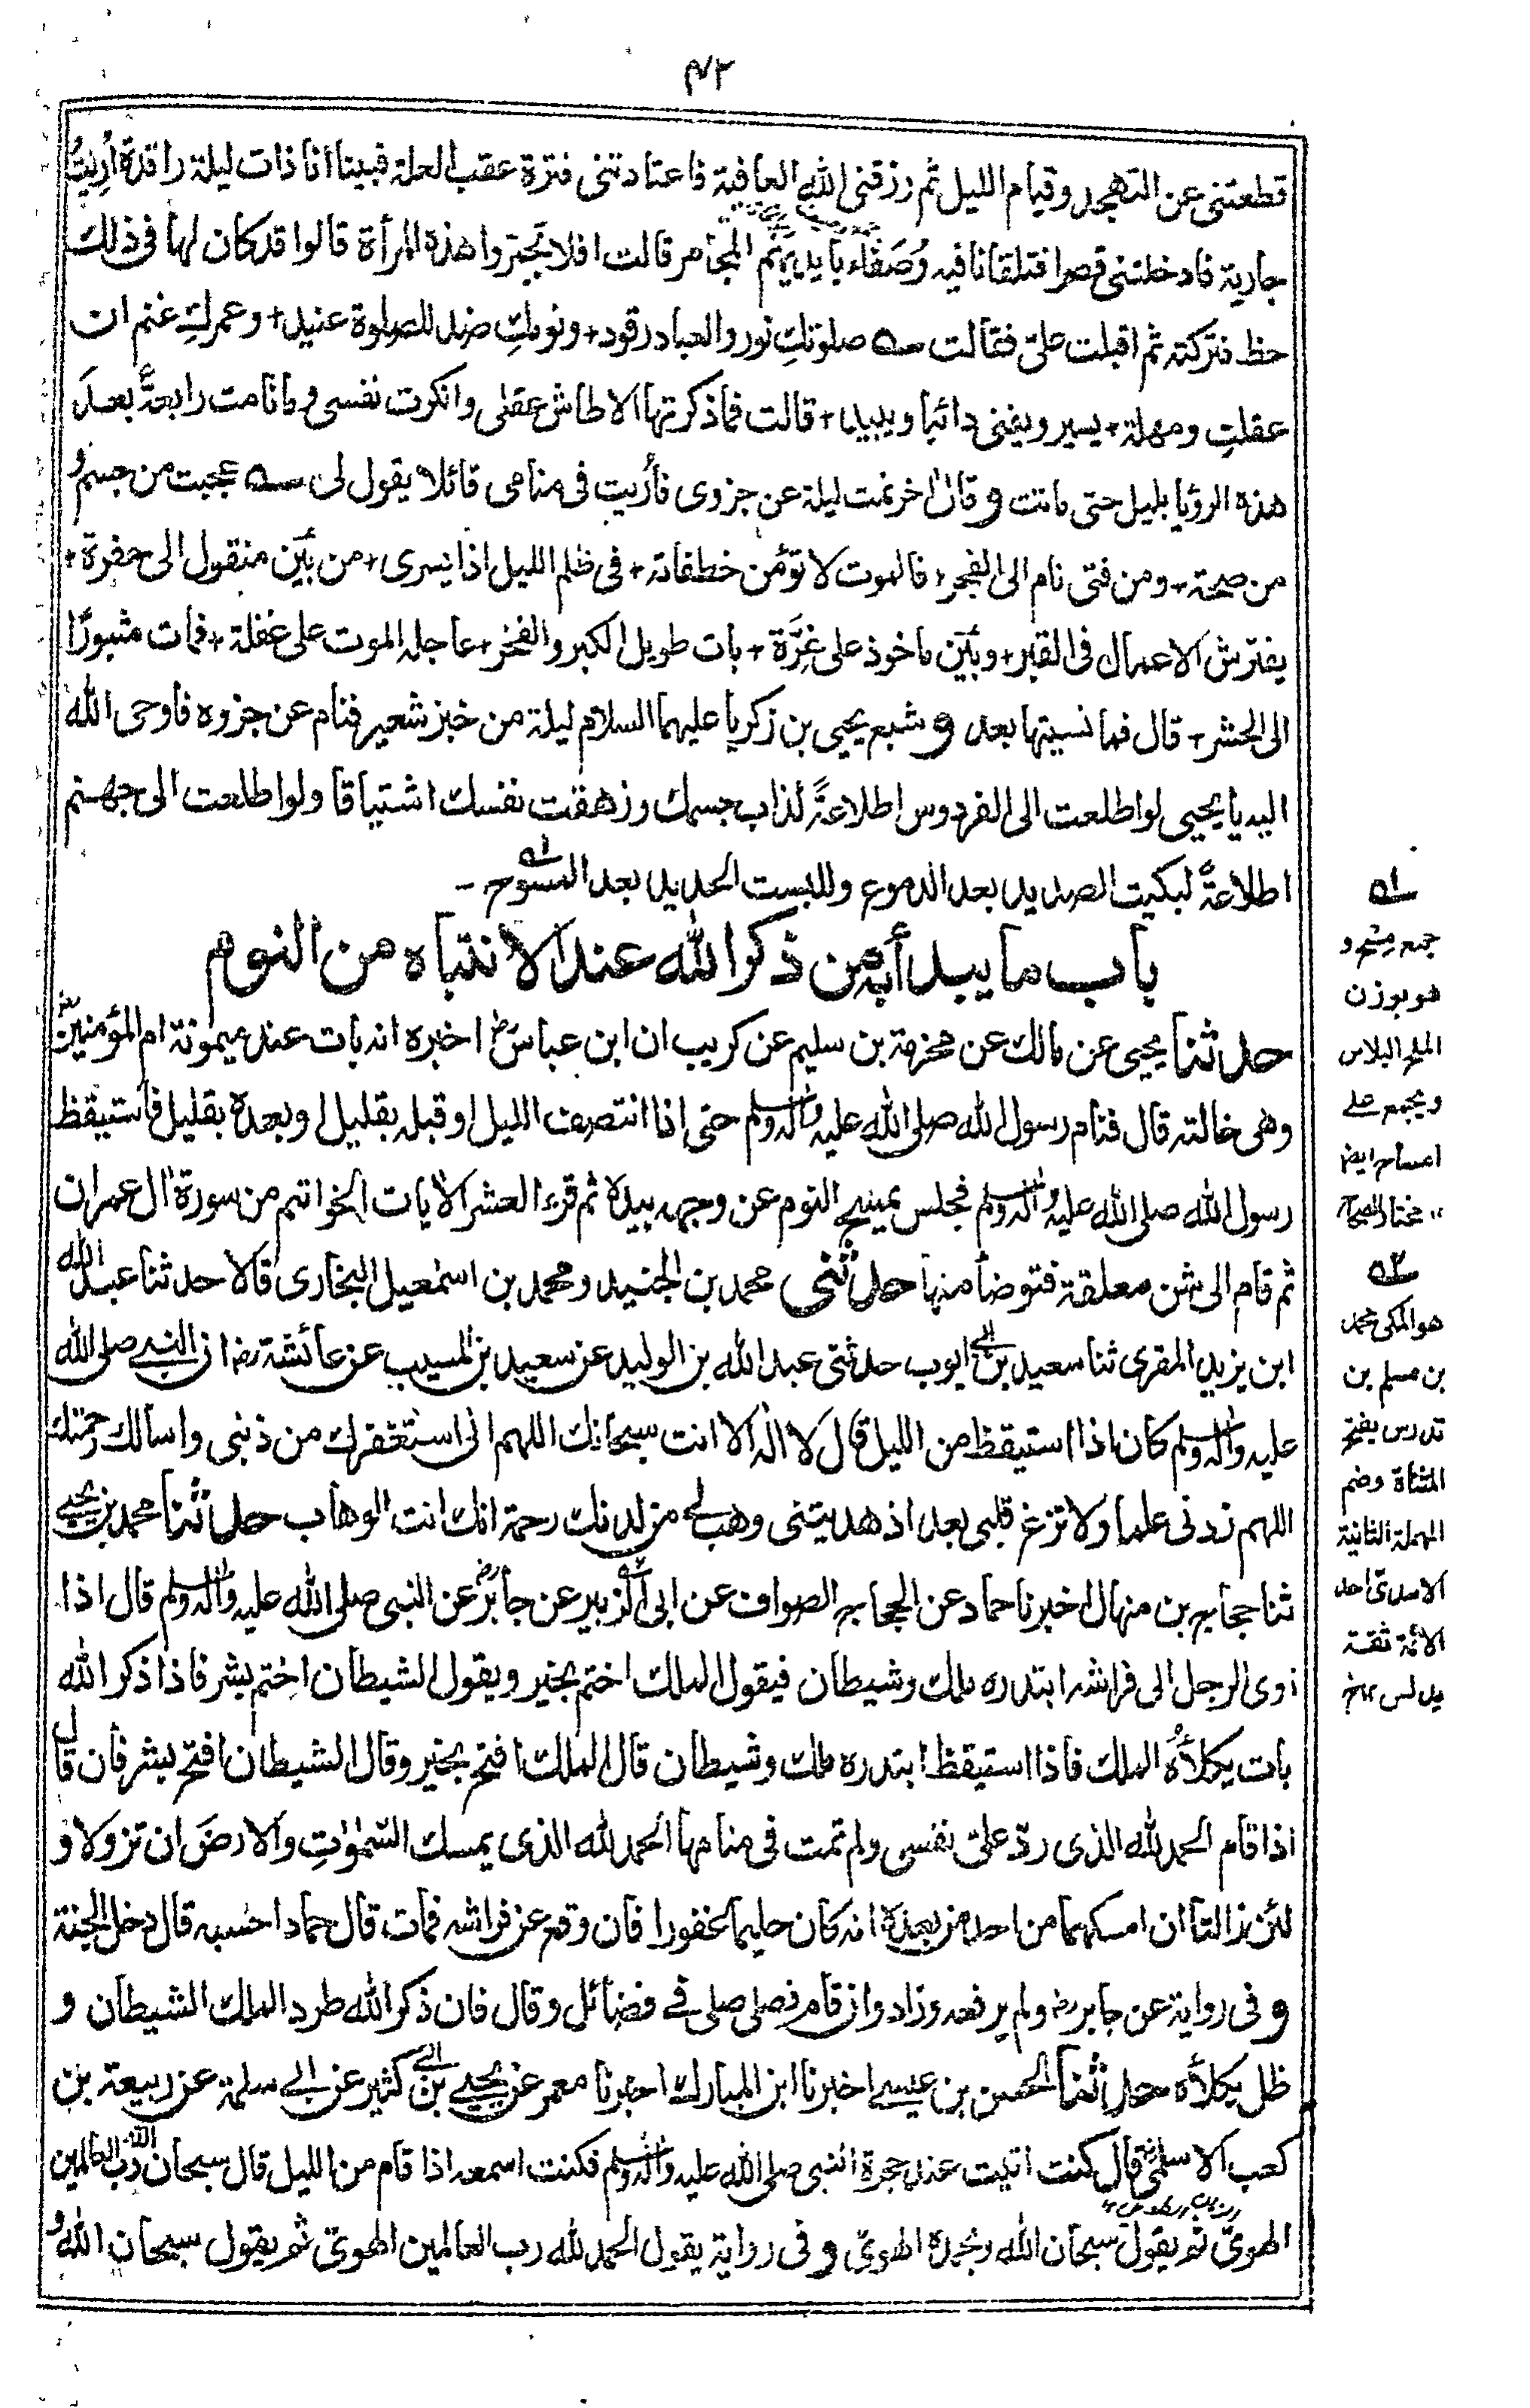 ۴۲
قطعتنى عن التهجد وقيام الليل ثم رزقنى الله العافية فاعتادتنى فترة عقب العلة فبينا انا ذات ليلة راقدة أُرِيتُ
جارية فادخلتنى قصرا فتلقانا فيه وُصَفَاء بايديهم المجامر قالت افلا تجمروا هذه المرأة قالوا قد كان لها فى ذلك
حظ فتركته ثم اقبلت علىّ فقالت ؎ صلوتكِ نور والعباد رقود + ونومكِ ضد للصلوة عنيد + وعمركِ غنم ان
عقلتِ ومهلة + يسير ويفنى دائبا ويبيد + قالت فما ذكرتها الا طاش عقلى وانكرت نفسى وما نامت رابعةُ بعد
هذه الرؤيا بليل حتى ماتت وقال اخر نمت ليلة عن جزوى فأُريت فى منامى قائلا يقول لى ؎ عجبت من جسم و
من صحة + ومن فتى نام الى الفجر + فالموت لا تؤمن خطفاته + فى ظلم الليل اذا يسرى + من بَيْن منقول الى حفرة +
يفترش الاعمال فى القبر + وبَيْن ماخوذ على غِرَّة + بات طويل الكبر والفخر + عاجله الموت على غفلة + فمات مثبورًا
الى الحشر + قال فما نسيتها بعد وشبع يحيى بن زكريا عليهما السلام ليلة من خبز شعير فنام عن جزوه فاوحى الله
اليه يا يحيى لو اطلعت الى الفردوس اطلاعةً لذاب جسمك وزهقت نفسك اشتياقا ولو اطلعت الى جهنم
اطلاعةً لبكيت الصديد بعد الدموع وللبست الحديد بعد المسوح ۱؎ -
باب ما يبدأ به من ذكر الله عند الانتباه من النوم
حدثنا يحيى عن مالك عن مخرمة بن سليم عن كريب ان ابن عباسؓ اخبره انه بات عند ميمونة ام المؤمنينؓ
وهى خالته قال فنام رسول الله صلى الله عليه واٰله وسلم حتى اذا انتصف الليل او قبله بقليل او بعده بقليل فاستيقظ
رسول الله صلى الله عليه واٰله وسلم فجلس يمسح النوم عن وجهه بيده ثم قرء العشر الاٰيات الخواتيم من سورة اٰل عمران
ثم قام الى شن معلقة فتوضأ منها حدثنى محمد بن الجنيد ومحمد بن اسمٰعيل البخارى قالا حدثنا عبد الله
ابن يزيد المقرى ثنا سعيد بن ابى ايوب حدثنى عبد الله بن الوليد عن سعيد بن المسيب عن عائشة رض ان النبى صلى الله
عليه واٰله وسلم كان اذا استيقظ من الليل قال لا اله الا انت سبحانك اللهم انى استغفرك من ذنبى واسالك رحمتك
اللهم زدنى علما ولا تزغ قلبى بعد اذ هديتنى وهب لى من لدنك رحمة انك انت الوهاب حدثنا محمد بن يحيى
ثنا حجاج بن منهال اخبرنا حماد عن الحجاج الصواف عن ابى الزبير ۲؎ عن جابرؓ عن النبى صلى الله عليه واٰله وسلم قال اذا
اوى الرجل الى فراشه ابتدره ملك وشيطان فيقول الملك اختم بخير ويقول الشيطان اختم بشر فاذا ذكر الله
بات يكلأُه الملك فاذا استيقظ ابتدره ملك وشيطان قال الملك افتح بخير وقال الشيطان افتح بشر فان قال
اذا قام الحمد لله الذى ردّ علىّ نفسى ولم تمت فى منامها الحمد لله الذى يمسك السّمٰوٰتِ والارضَ ان تزولا و
لئن زالتا ان امسكهما من احد من بعده انه كان حليما غفورا فان وقع عن فراشه فمات قال حماد احسبه قال دخل الجنة
وفى رواية عن جابر رض ولم يرفعه وزاد وان قام فصلى صلى فى فضائل وقال فان ذكر الله طرد الملك الشيطان و
ظل يكلأه حدثنا الحسن بن عيسى اخبرنا ابن المبارك اخبرنا معمر عن يحيى بن ابى كثير عن ابى سلمة عن ربيعة بن
كعب الاسلمىؓ قال كنت ابيت عند حجرة النبى صلى الله عليه واٰله وسلم فكنت اسمعه اذا قام من الليل قال سبحان الله رب العالمين
الهوىّ ثم يقول سبحان الله وبحمده الهوىّ وفى رواية يقول الحمد لله رب العالمين الهوىّ ثم يقول سبحان الله و
۱؎
جمعه مسح و
هو بوزن
الملح البلاس
ويجمع على
امساح ايضا
۱۲ مختار الصحاح
۲؎
هو المكى محمد
بن مسلم بن
تدرس بفتح
المثناة وضم
المهملة الثانية
الاسدى احد
الائمة ثقة
يدلس